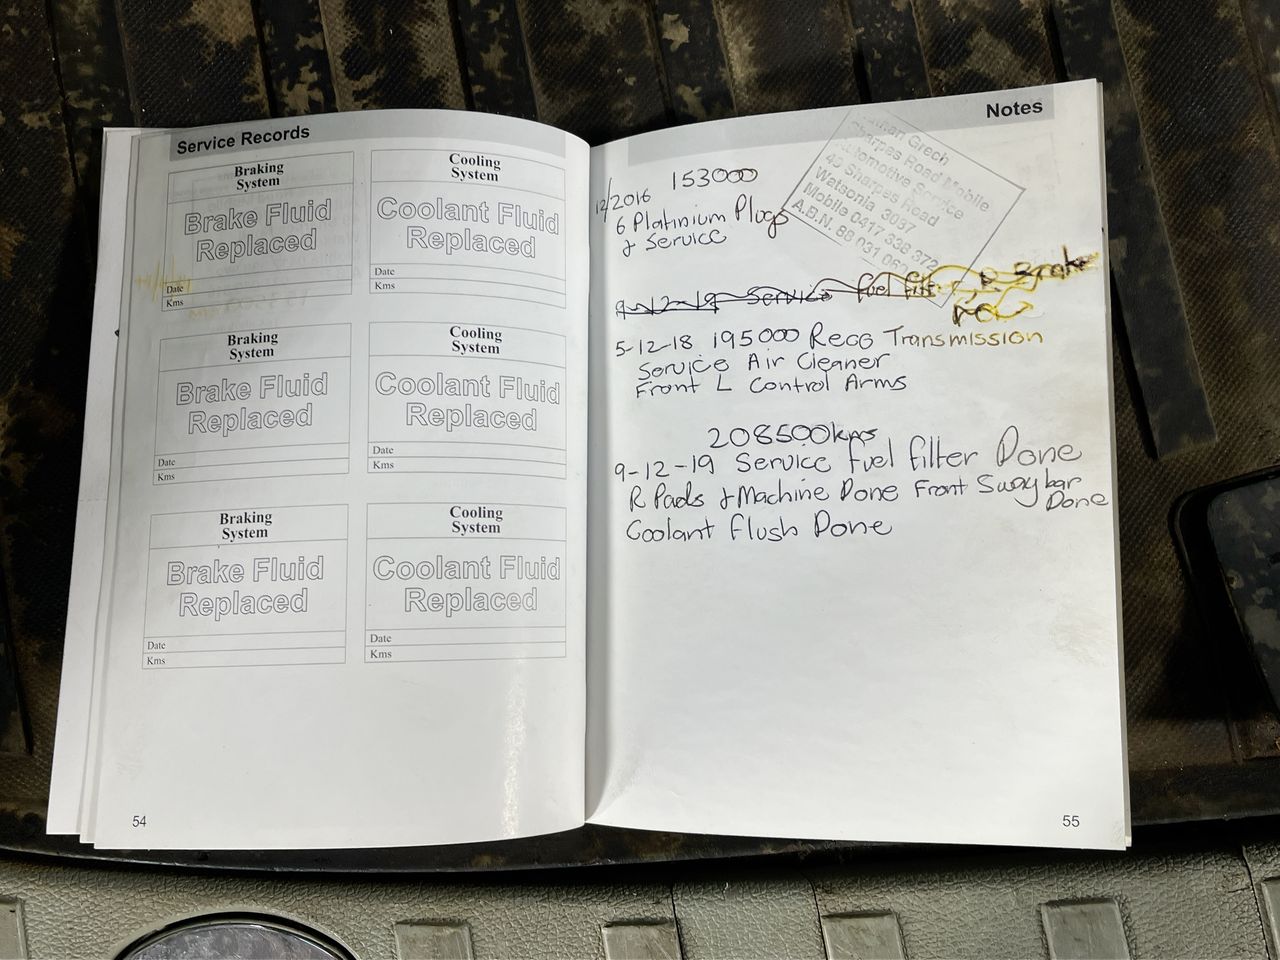 Service Records
Braking
System
Brake Fluid
Replaced
Date
Kms
Cooling
System
Coolant Fluid
Replaced
Date
Kms
Braking
System
Brake Fluid
Replaced
Date
Kms
Cooling
System
Coolant Fluid
Replaced
Date
Kms
Braking
System
Brake Fluid
Replaced
Date
Kms
Cooling
System
Coolant Fluid
Replaced
Date
Kms
54
Notes
Grech
Sharpes Road Mobile
Automotive Service
49 Sharpes Road
Watsonia 3087
Mobile 0417 338 372
A.B.N. 88 031
12/2016 153000
6 Platinium Plugs
& Service
9-12-19 Service fuel filt R Brake
5-12-18 195000 Reco Transmission
Service Air Cleaner
Front L Control Arms
208500kms
9-12-19 Service fuel filter Done
R Pads & Machine Done Front Swaybar
Done
Coolant flush Done
55